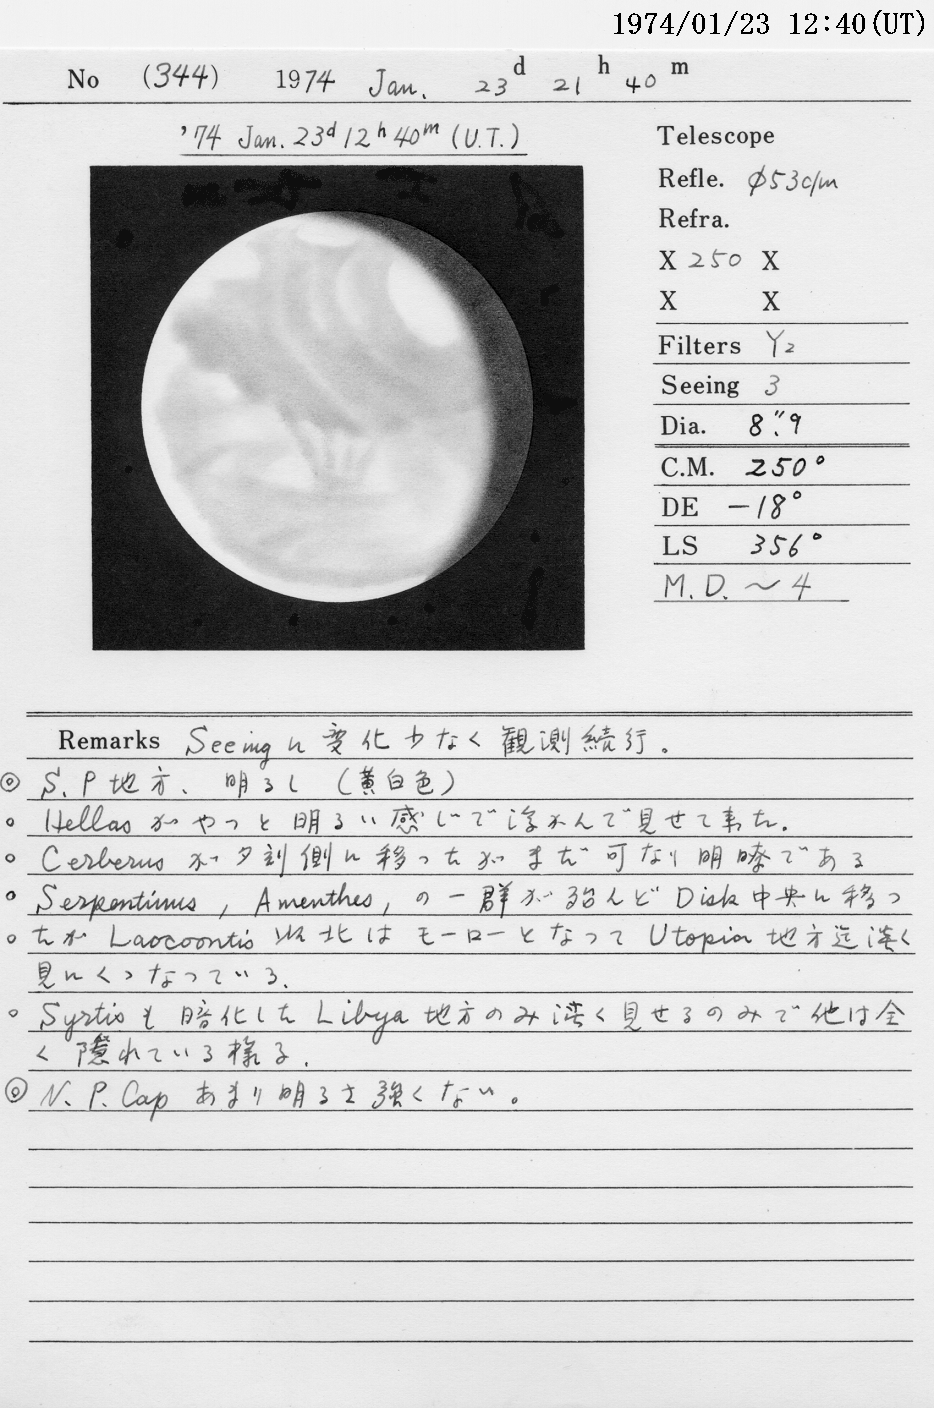 1974/01/23 12:40(UT)
No (344) 1974 Jan. 23d 21h 40m
'74 Jan. 23d 12h 40m (U.T.)
Telescope
Refle. φ53c/m
Refra.
X 250 X
X X
Filters Y2
Seeing 3
Dia. 8".9
C.M. 250°
DE −18°
LS 356°
M.D. ~ 4
Remarks Seeingに変化少なく観測続行。
◎ S.P地方、明るし (黄白色)
o Hellasがやっと明るい感じで浮かんで見せて来た.
o Cerberusが夕刻側に移ったがまだ可なり明瞭である
o Serpentinus, Amenthes, の一群が殆んど Disk中央に移っ
o たが Laocoontis 以北はモーローとなって Utopia 地方迄淡く
見にくゝなっている.
o Syrtisも暗化した Libya 地方のみ淡く見せるのみで他は全
く隠れている様子.
◎ N.P.Cap あまり明るさ強くない。